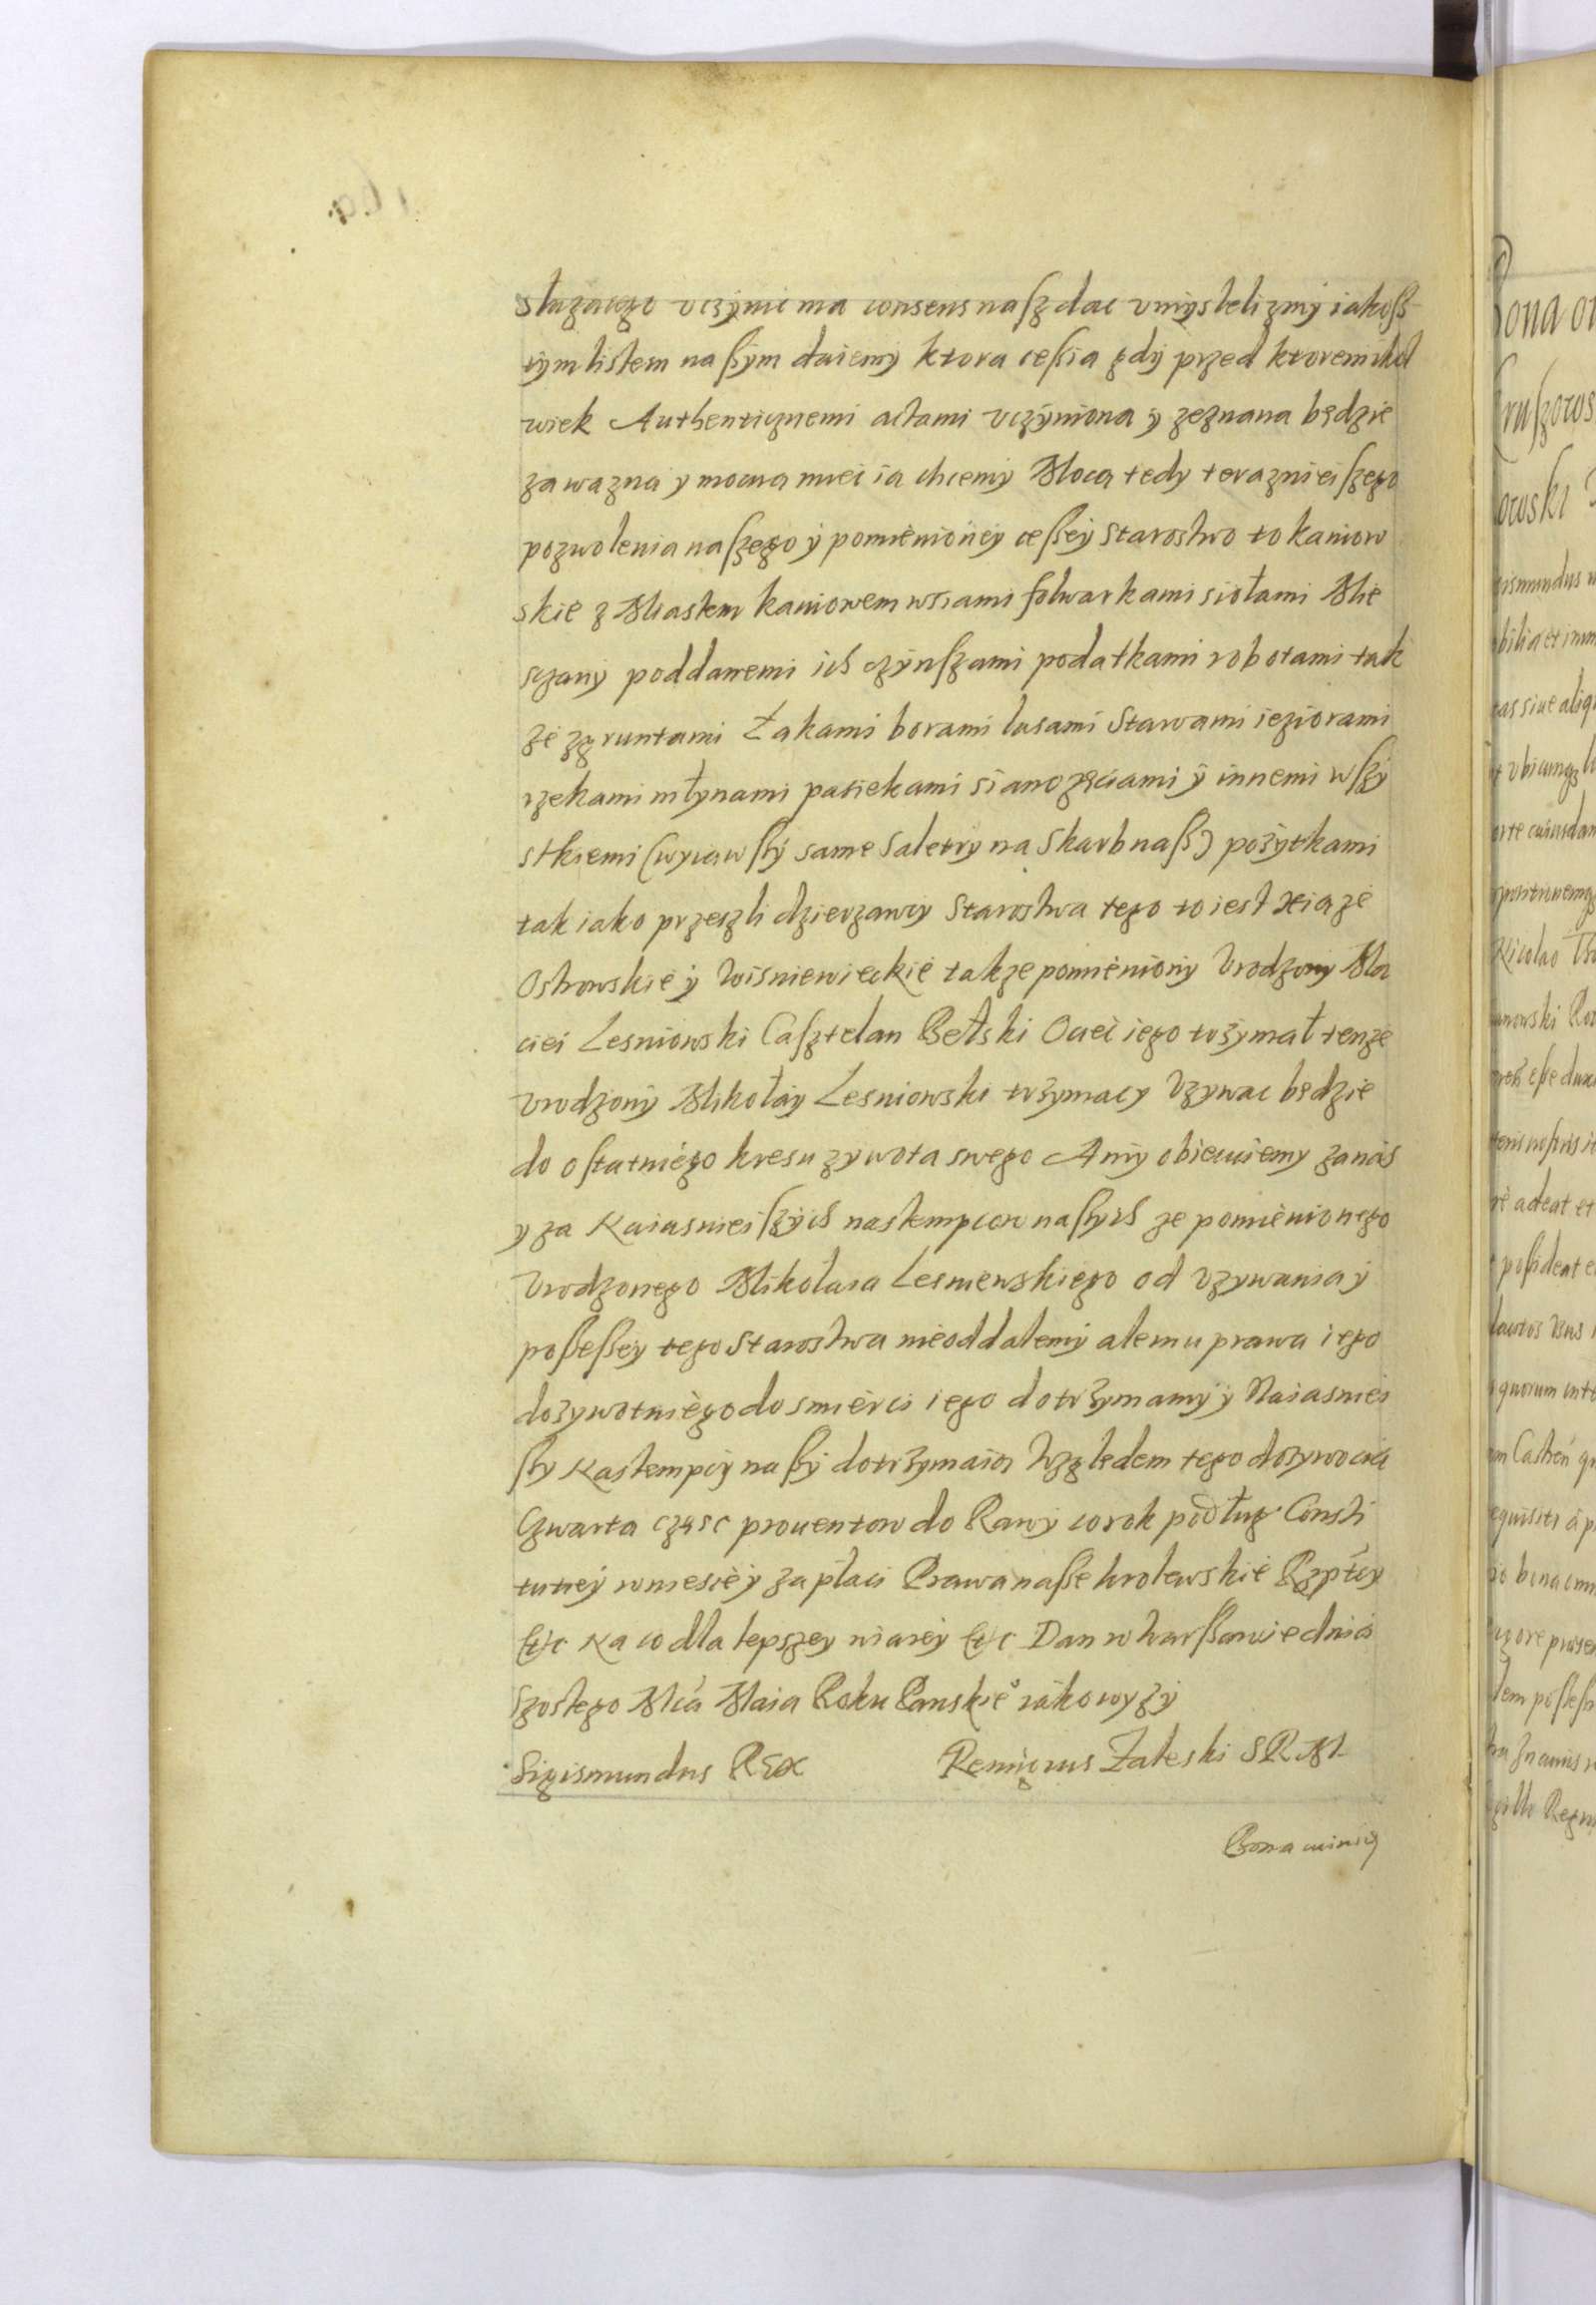 sluzącego uczynic ma consens nasz dac umyslelizmy iakosz
tym listem naßym daiemy ktora ceßia gdy przed ktoremikol
wiek Authenticznemi actami uczyniona y zeznana będzie
za wazna y mocna miec ią chcemy Mocą tedy terazniejszego
pozwolenia naszego y pomienioney ceßey Starostwo to kaniow
skie z Miastem kaniowem wsiami folwarkami siołami Mie
sczany poddanemi ich czynszami podatkami robotami tak
ze z gruntami Łąkami borami lasami Stawami ieziorami
rzekami młynami pasiekami sianozęciami y innemi wszy
stkiemi (wyiąwßy same Saletry na Skarb naß) pożytkami
tak iako przeszli dzierzawcy Starostwa tego to iest xiąze
Ostrowskie y Wisniewieckie takze pomieniony Vrodzony Ma
ciei Lesniowski Casztelan Bełski Ociec iego trzymał tenze
Vrodzony Mikołay Lesniowski trzymac y Vzywac będzie
do ostatniego kresu zywota swego A my obiecuiemy za nas
y za Naiasnieiszych nastempcow naßych ze pomienionego
Vrodzonego Mikołaia Lesniewskiego od Vzywania y
poßeßey tego Starostwa nie oddalemy ale mu prawa iego
dozywotniego do smierci iego dotrzymamy y Naiasniei
ßy Nastempcy naßy dotrzymaią Względem tego dozywocia
Czwarta częsc prouentow do Rawy co rok podług Consti
tutiey wniesie y zapłaci Prawa naße krolewskie Rzptey
Etc Na co dla lepszey wiarey Etc Dan w Warßawie dnia
Szostego Mca Maia Roku Panskie° iako wyzy
Sigismundus Rex Remigius Zaleski SRM
Bona cuiusq